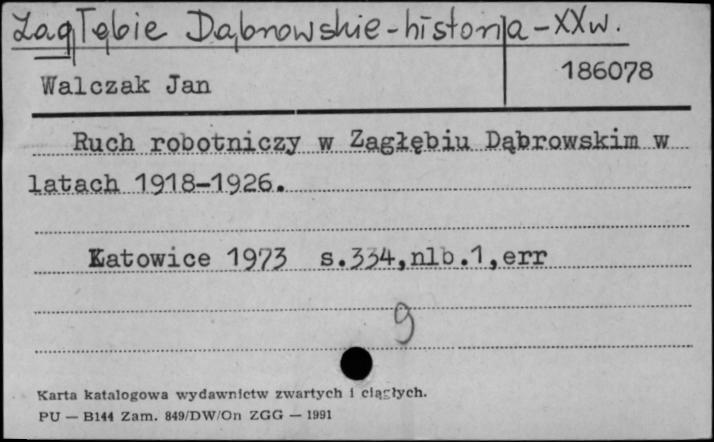 Zagłębie Dąbrowskie - historia - XX w.
Walczak Jan
186078
Ruch robotniczy w Zagłębiu Dąbrowskim w
latach 1918-1926.
Katowice 1973 s.334,nlb.1,err
9
Karta katalogowa wydawnictw zwartych i ciągłych.
PU — B144 Zam. 849/DW/On ZGG — 1991